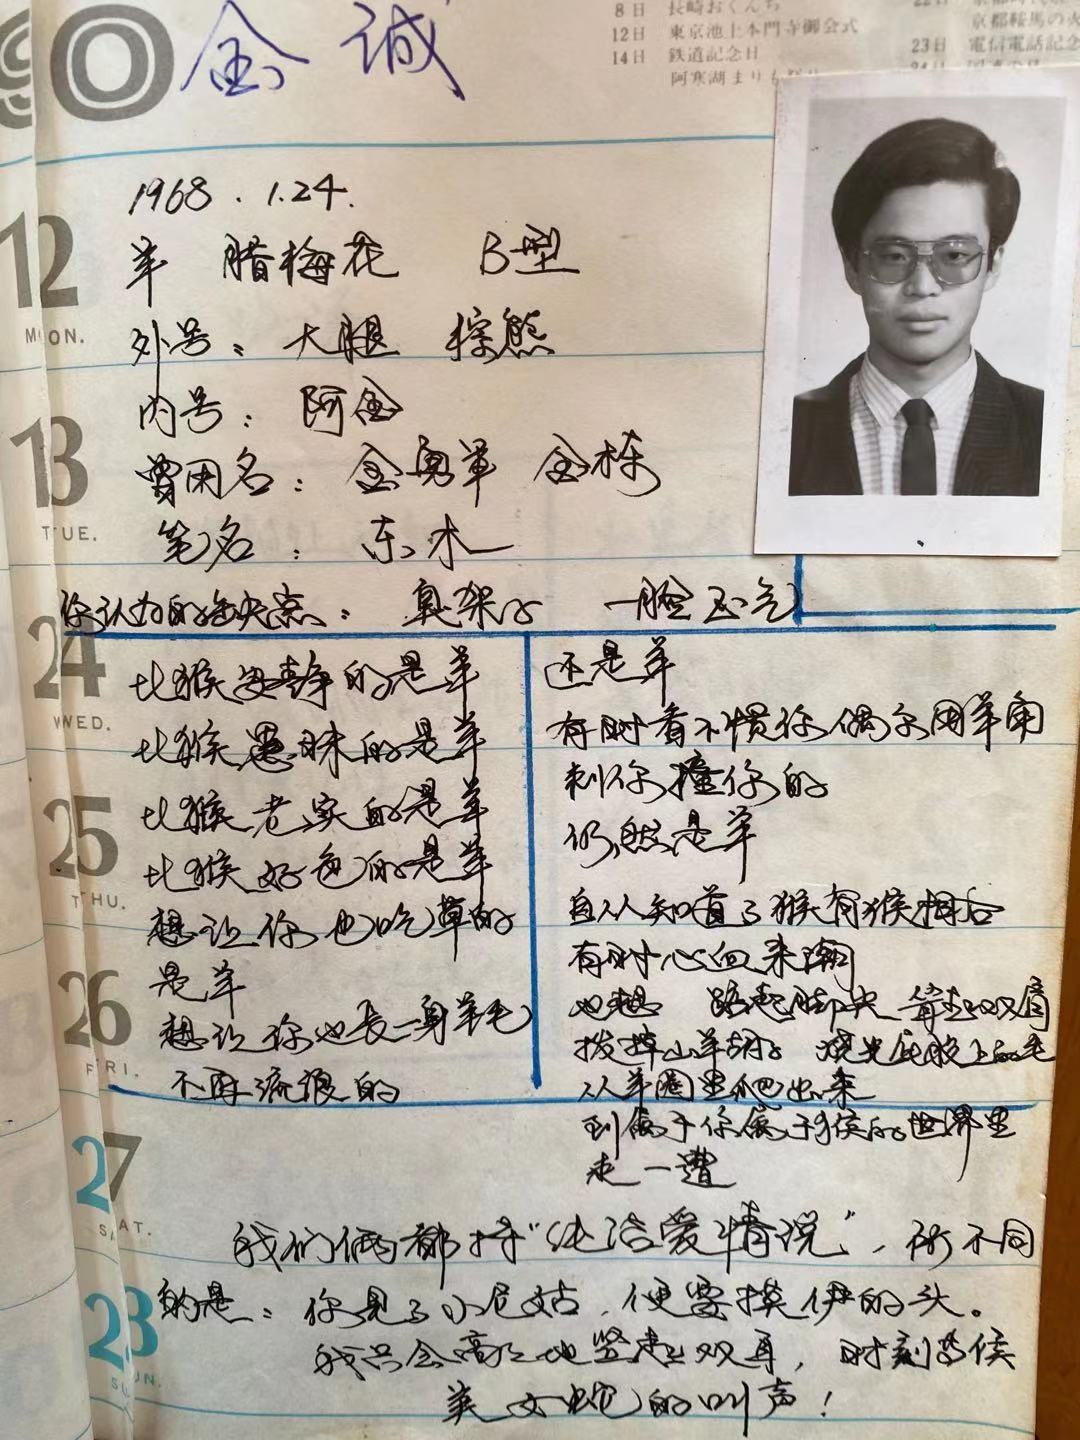 90
金诚
8日 長崎おくんち
12日 東京池上本門寺御会式
14日 鉄道記念日
阿寒湖まりも
京都鞍馬の火
23日 電信電話記念
1968.1.24.
羊 腊梅花 B型
外号：大腿 棕熊
内号：阿金
曾用名：金勇军 金栋
笔名：东木
你认为的缺点：臭架子 一脸正气
比猴安静的是羊
比猴愚昧的是羊
比猴老家的是羊
比猴好色的是羊
想让你也吃草的
是羊
想让你也长一身羊毛
不再流浪的
还是羊
有时看不惯你偶尔用羊角
刺你撞你的
仍然是羊
自从知道了猴有猴相后
有时心血来潮
也想 踮起脚尖 耸起双肩
拨掉山羊胡子 烧光屁股上的毛
从羊圈里爬出来
到属于你属于猴的世界里
走一遭
我们俩都持“纯洁爱情说”，所不同
的是：你见了小尼姑，便要摸伊的头。
我只会高高地竖起双耳，时刻等候
美女蛇的叫声！
12
MON.
13
TUE.
24
WED.
25
THU.
26
FRI.
27
SAT.
28
SUN.